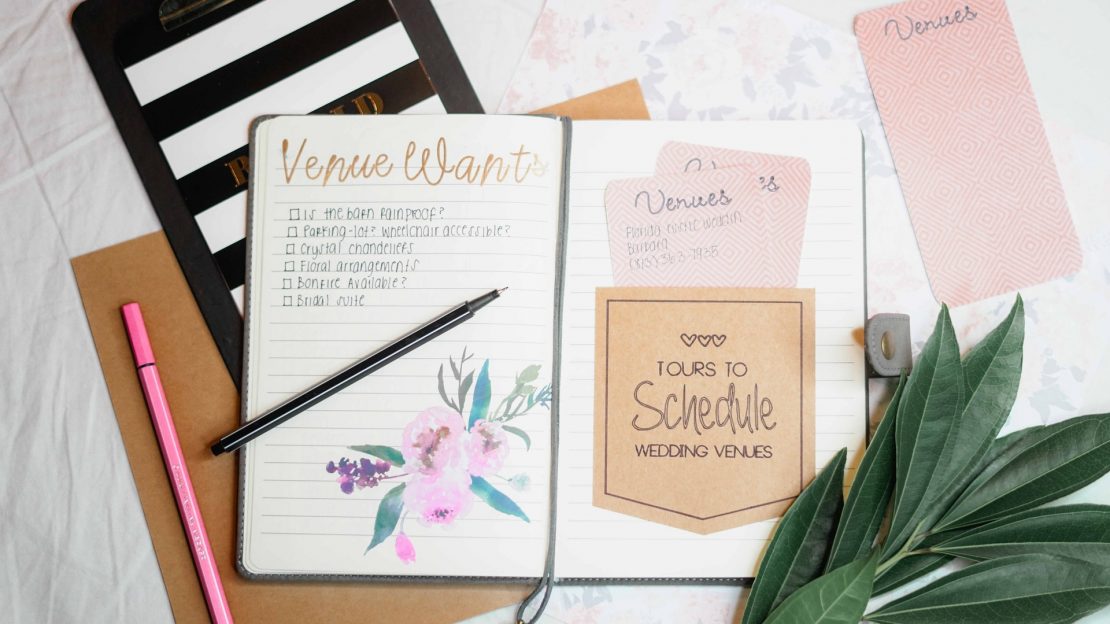 Venue Wants
Is the barn rainproof?
Parking-lot? Wheelchair accessible?
Crystal chandeliers
Floral arrangements
Bonfire Available?
Bridal suite
Venues
Florida
Barbara
TOURS TO
Schedule
WEDDING VENUES
Venues